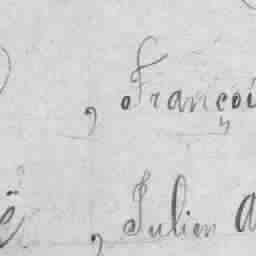 , Françoi
ë , Julien A